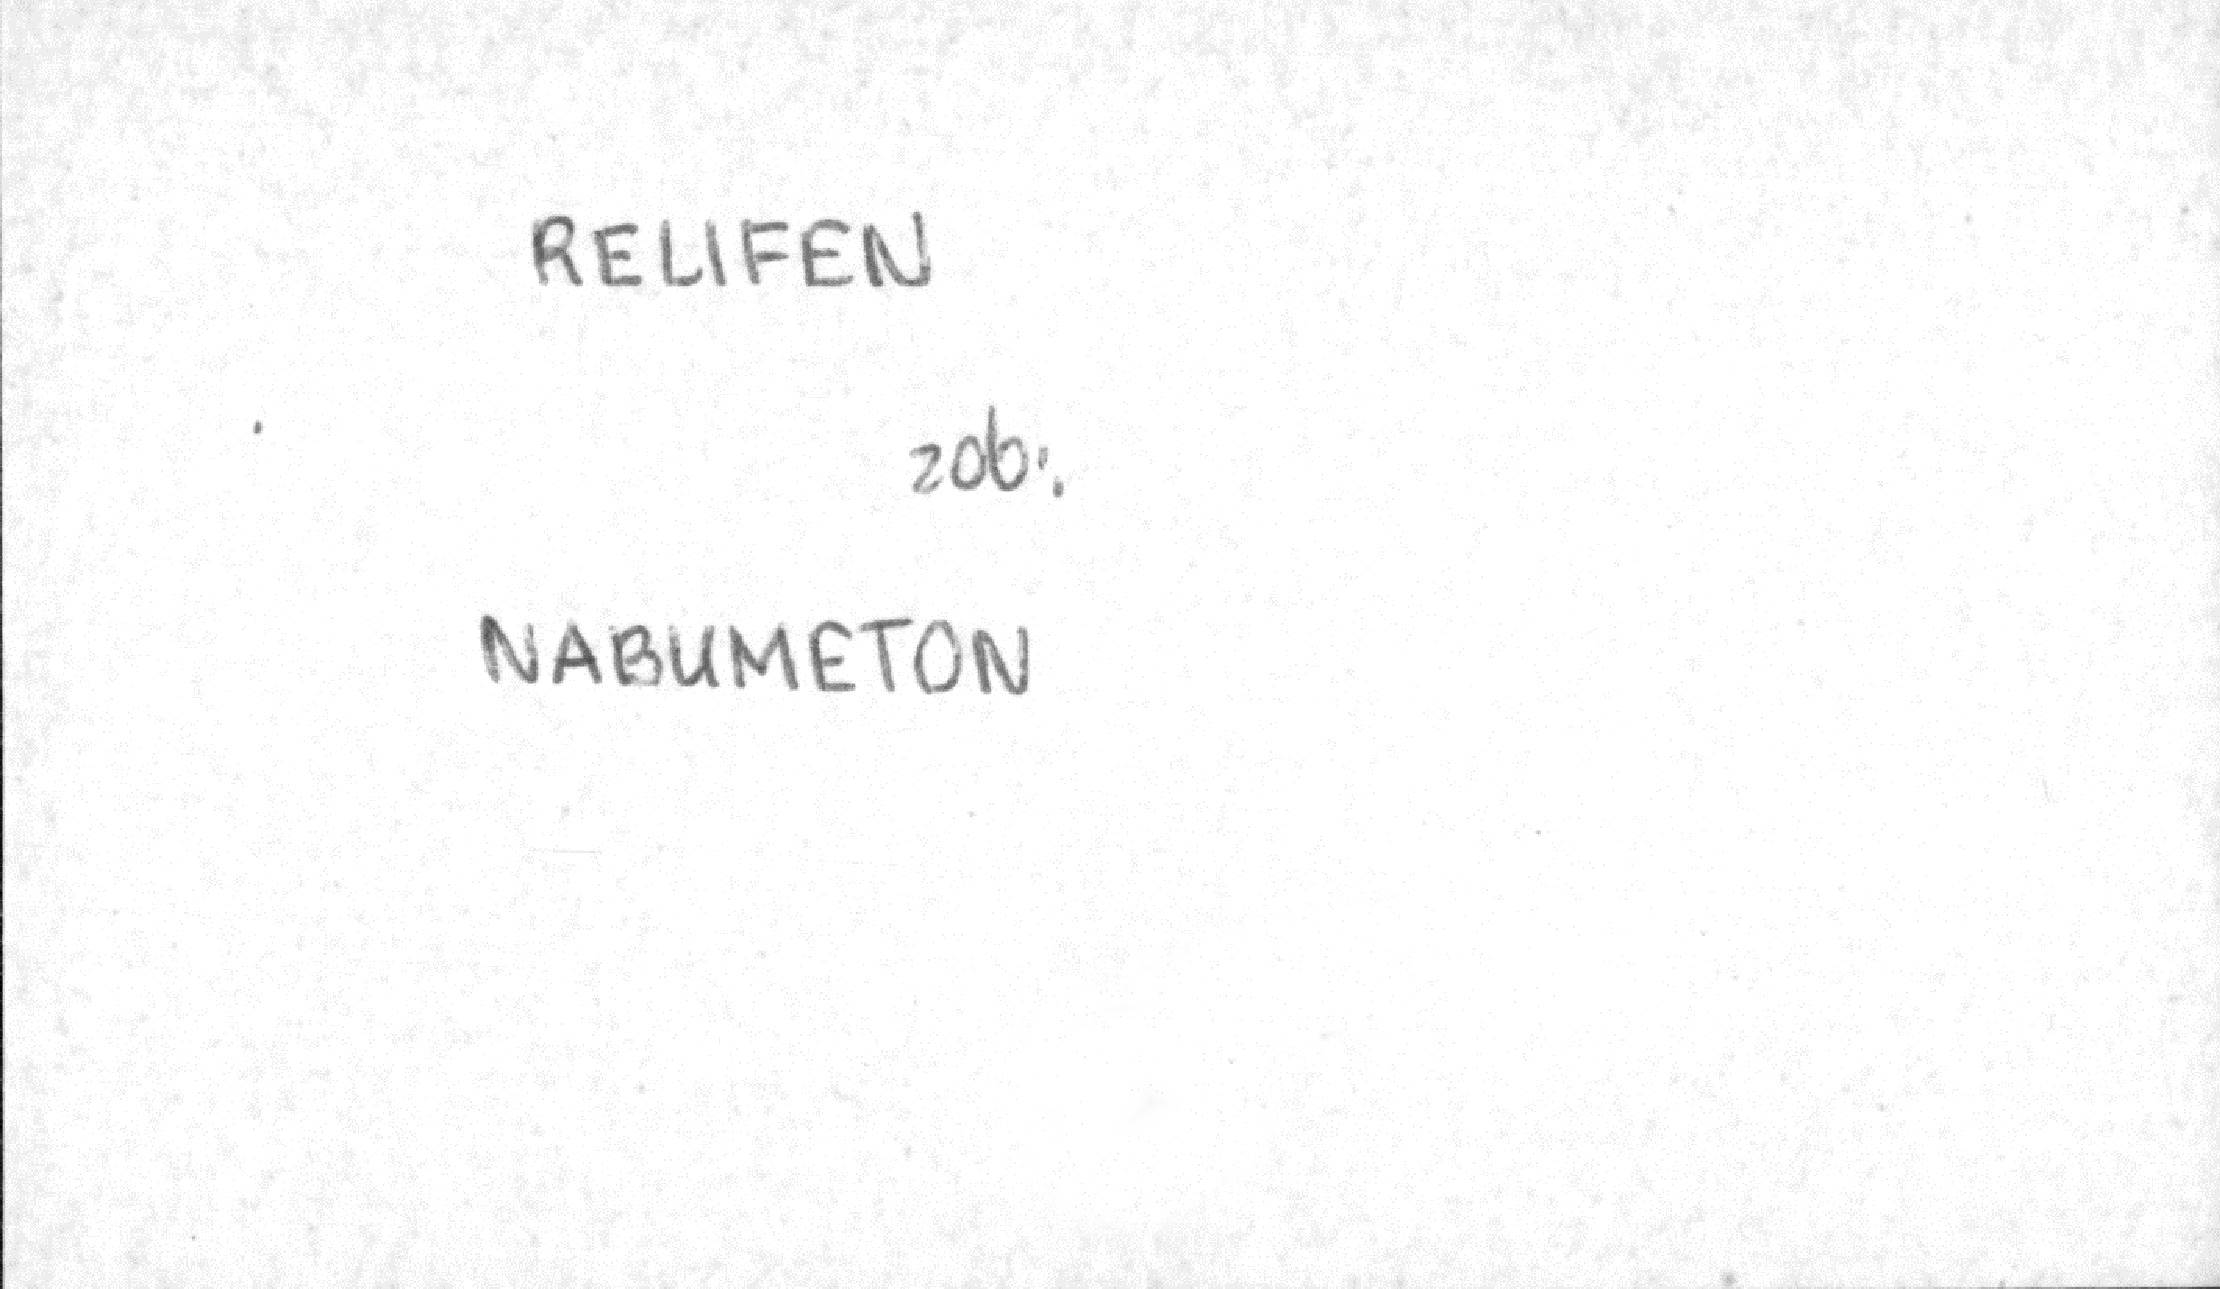 RELIFEN
zob.
NABUMETON